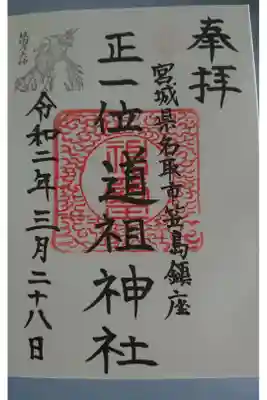 奉拝
宮城県名取市笠島鎮座
正一位 道祖神社
令和二年三月二十八日